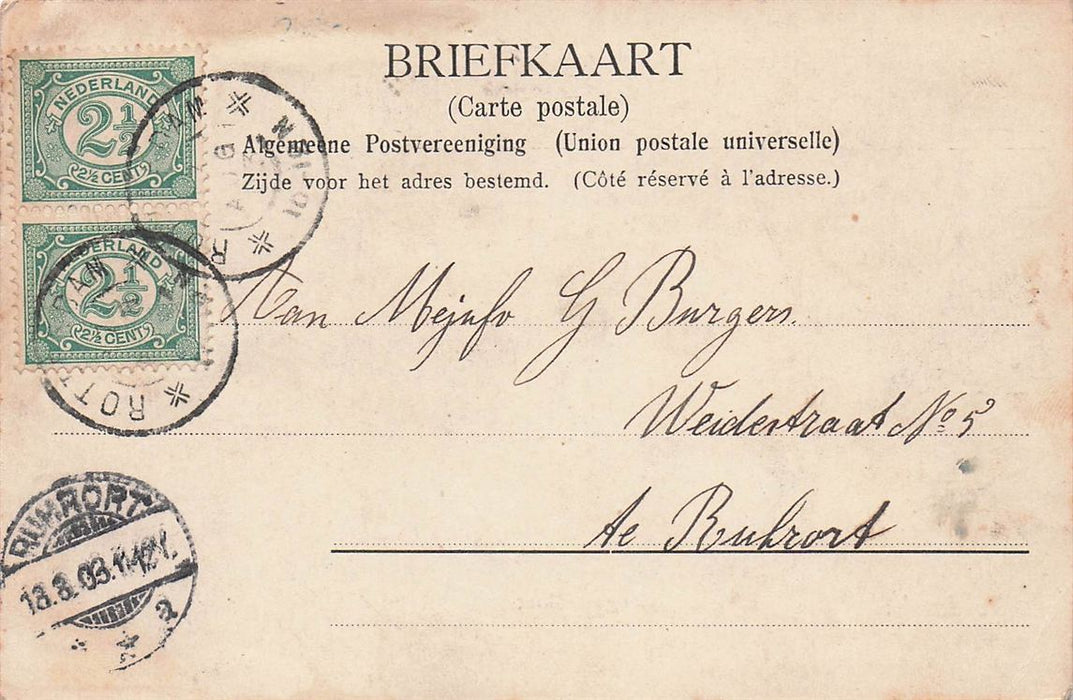 BRIEFKAART
(Carte postale)
Algemeene Postvereeniging (Union postale universelle)
Zijde voor het adres bestemd. (Côté réservé à l'adresse.)
NEDERLAND
2½
2½ CENT
NEDERLAND
2½
2½ CENT
ROTT
Aan Mejufo G Burgers.
Weidestraat No 5
te Ruhrort
RUHRORT
18.8.03.11-12V.
a